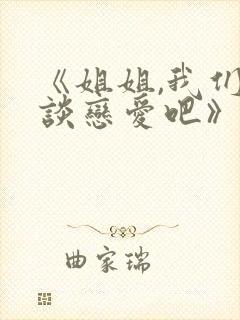 《姐姐,我们
談戀愛吧》
曲家瑞